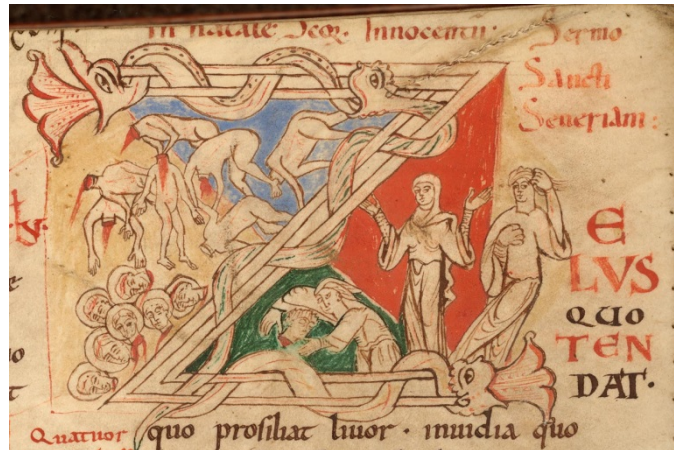 In natale Scoꝝ Innocentū. Sermo
Sancti
Seueriani:
E
LVS
QUO
TEN
DAT.
Quatuor quo prosiliat liuor. inuidia quo